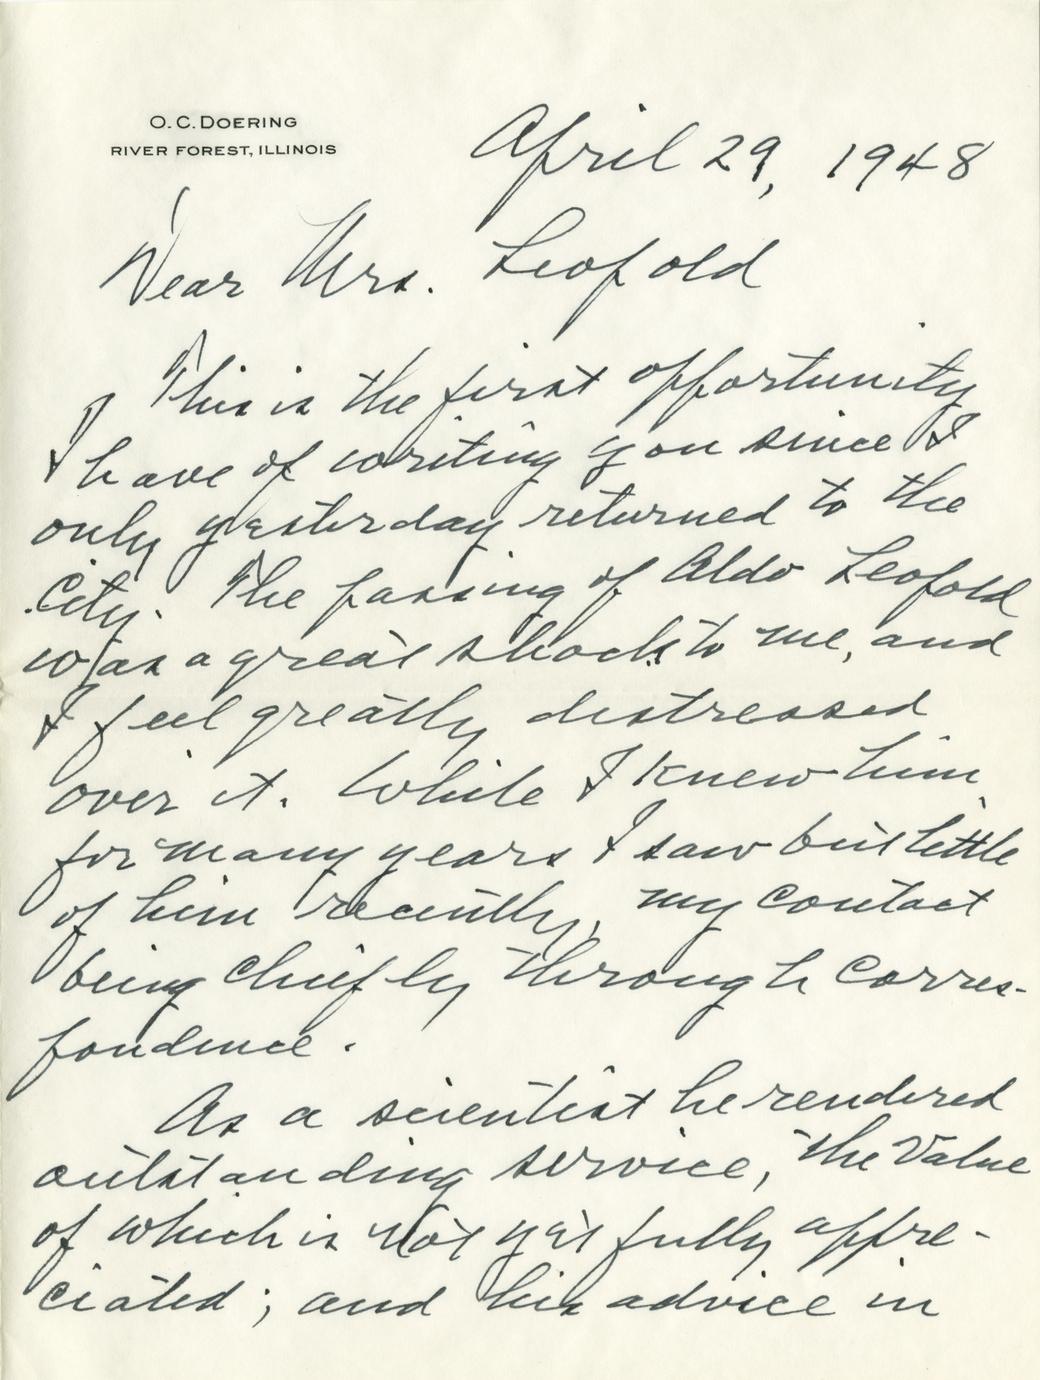 O. C. DOERING
RIVER FOREST, ILLINOIS
April 29, 1948
Dear Mrs. Leopold
This is the first opportunity
I have of writing you since I
only yesterday returned to the
City. The passing of Aldo Leopold
was a great shock to me, and
I feel greatly distressed
over it. While I knew him
for many years I saw but little
of him recently, my contact
being chiefly through corres-
pondence.
As a scientist he rendered
outstanding service, the value
of which is not yet fully appre-
ciated; and his advice in